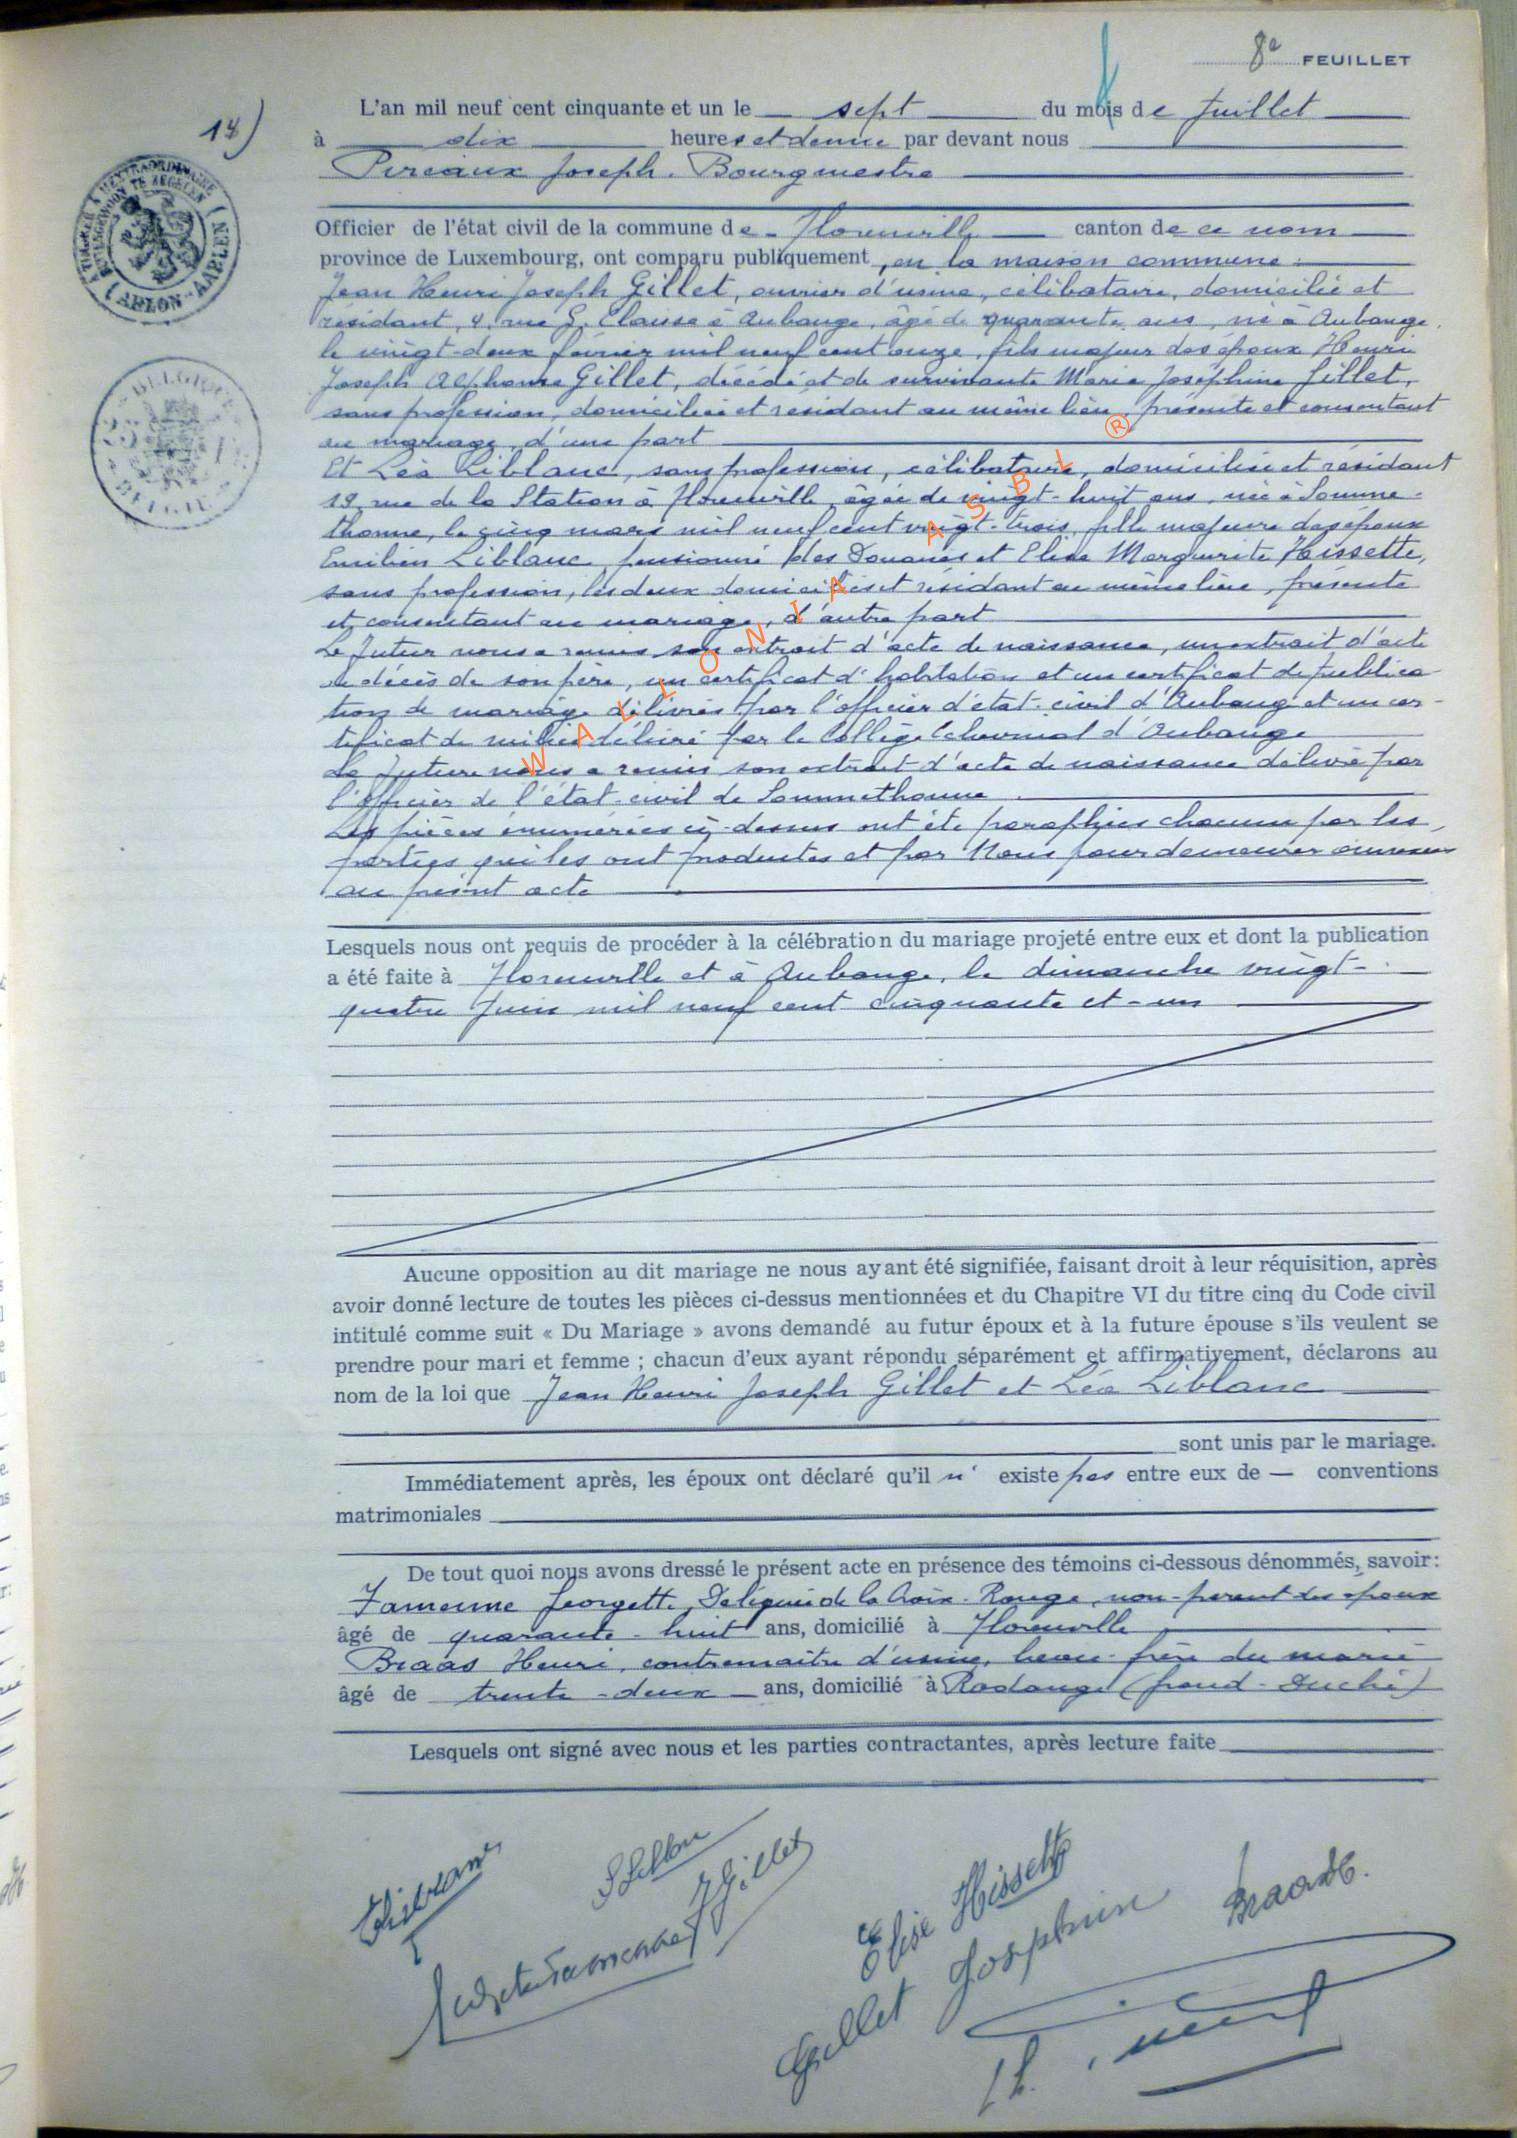 8e FEUILLET
14)
L'an mil neuf cent cinquante et un le sept du mois de Juillet
à dix heures et demie par devant nous
Pireaux Joseph. Bourgmestre
TIMBRE EXTRAORDINAIRE
BUITENGEWOON TE ZEGELEN
ARLON-AARLEN
Officier de l'état civil de la commune de Florenville canton de ce nom
province de Luxembourg, ont comparu publiquement, en la maison commune:
Jean Henri Joseph Gillet, ouvrier d'usine, célibataire, domicilié et
résidant, 4, rue G. Claisse à Aubange, âgé de quarante ans, né à Aubange,
le vingt-deux février mil neuf cent onze, fils majeur des époux Henri
Joseph Alphonse Gillet, décédé et de survivante Marie Joséphine Gillet,
sans profession, domiciliée et résidant au même lieu, présente et consentant
au mariage, d'une part
BELGIQUE
BELGIE
Et Léa Liblanc, sans profession, célibataire, domiciliée et résidant
18, rue de la Station à Florenville, âgée de vingt-huit ans, née à Somme-
thonne, le cinq mars mil neuf cent vingt-trois, fille majeure des époux
Emilien Liblanc, pensionné des Douanes et Elise Marguerite Hissette,
sans profession, les deux domiciliés et résidant au même lieu, présents
et consentant au mariage, d'autre part
Le futur nous a remis son extrait d'acte de naissance, un extrait d'acte
de décès de son père, un certificat d'habitation et un certificat de publica-
tion de mariage délivrés par l'officier d'état-civil d'Aubange et un cer-
tificat de milice délivré par le Collège Echevinal d'Aubange
La future nous a remis son extrait d'acte de naissance délivré par
l'officier de l'état-civil de Sommethonne.
Les pièces énumérées ci-dessus ont été paraphées chacune par les
parties qui les ont produites et par Nous pour demeurer annexées
au présent acte
WALLONIA ASBL ®
Lesquels nous ont requis de procéder à la célébration du mariage projeté entre eux et dont la publication
a été faite à Florenville et à Aubange, le dimanche vingt-
quatre Juin mil neuf cent cinquante et-un
Aucune opposition au dit mariage ne nous ayant été signifiée, faisant droit à leur réquisition, après
avoir donné lecture de toutes les pièces ci-dessus mentionnées et du Chapitre VI du titre cinq du Code civil
intitulé comme suit « Du Mariage » avons demandé au futur époux et à la future épouse s'ils veulent se
prendre pour mari et femme ; chacun d'eux ayant répondu séparément et affirmativement, déclarons au
nom de la loi que Jean Henri Joseph Gillet et Léa Liblanc
sont unis par le mariage.
Immédiatement après, les époux ont déclaré qu'il n' existe pas entre eux de — conventions
matrimoniales
De tout quoi nous avons dressé le présent acte en présence des témoins ci-dessous dénommés, savoir :
Famenne Georgette, Déléguée de la Croix-Rouge, non-parent des époux
âgé de quarante-huit ans, domicilié à Florenville
Braas Henri, contremaître d'usine, beau-frère du marié
âgé de trente-deux ans, domicilié à Rodange (Grand-Duché)
Lesquels ont signé avec nous et les parties contractantes, après lecture faite
JGillet
Elise Hissette
Gillet Joséphine
Braas H.